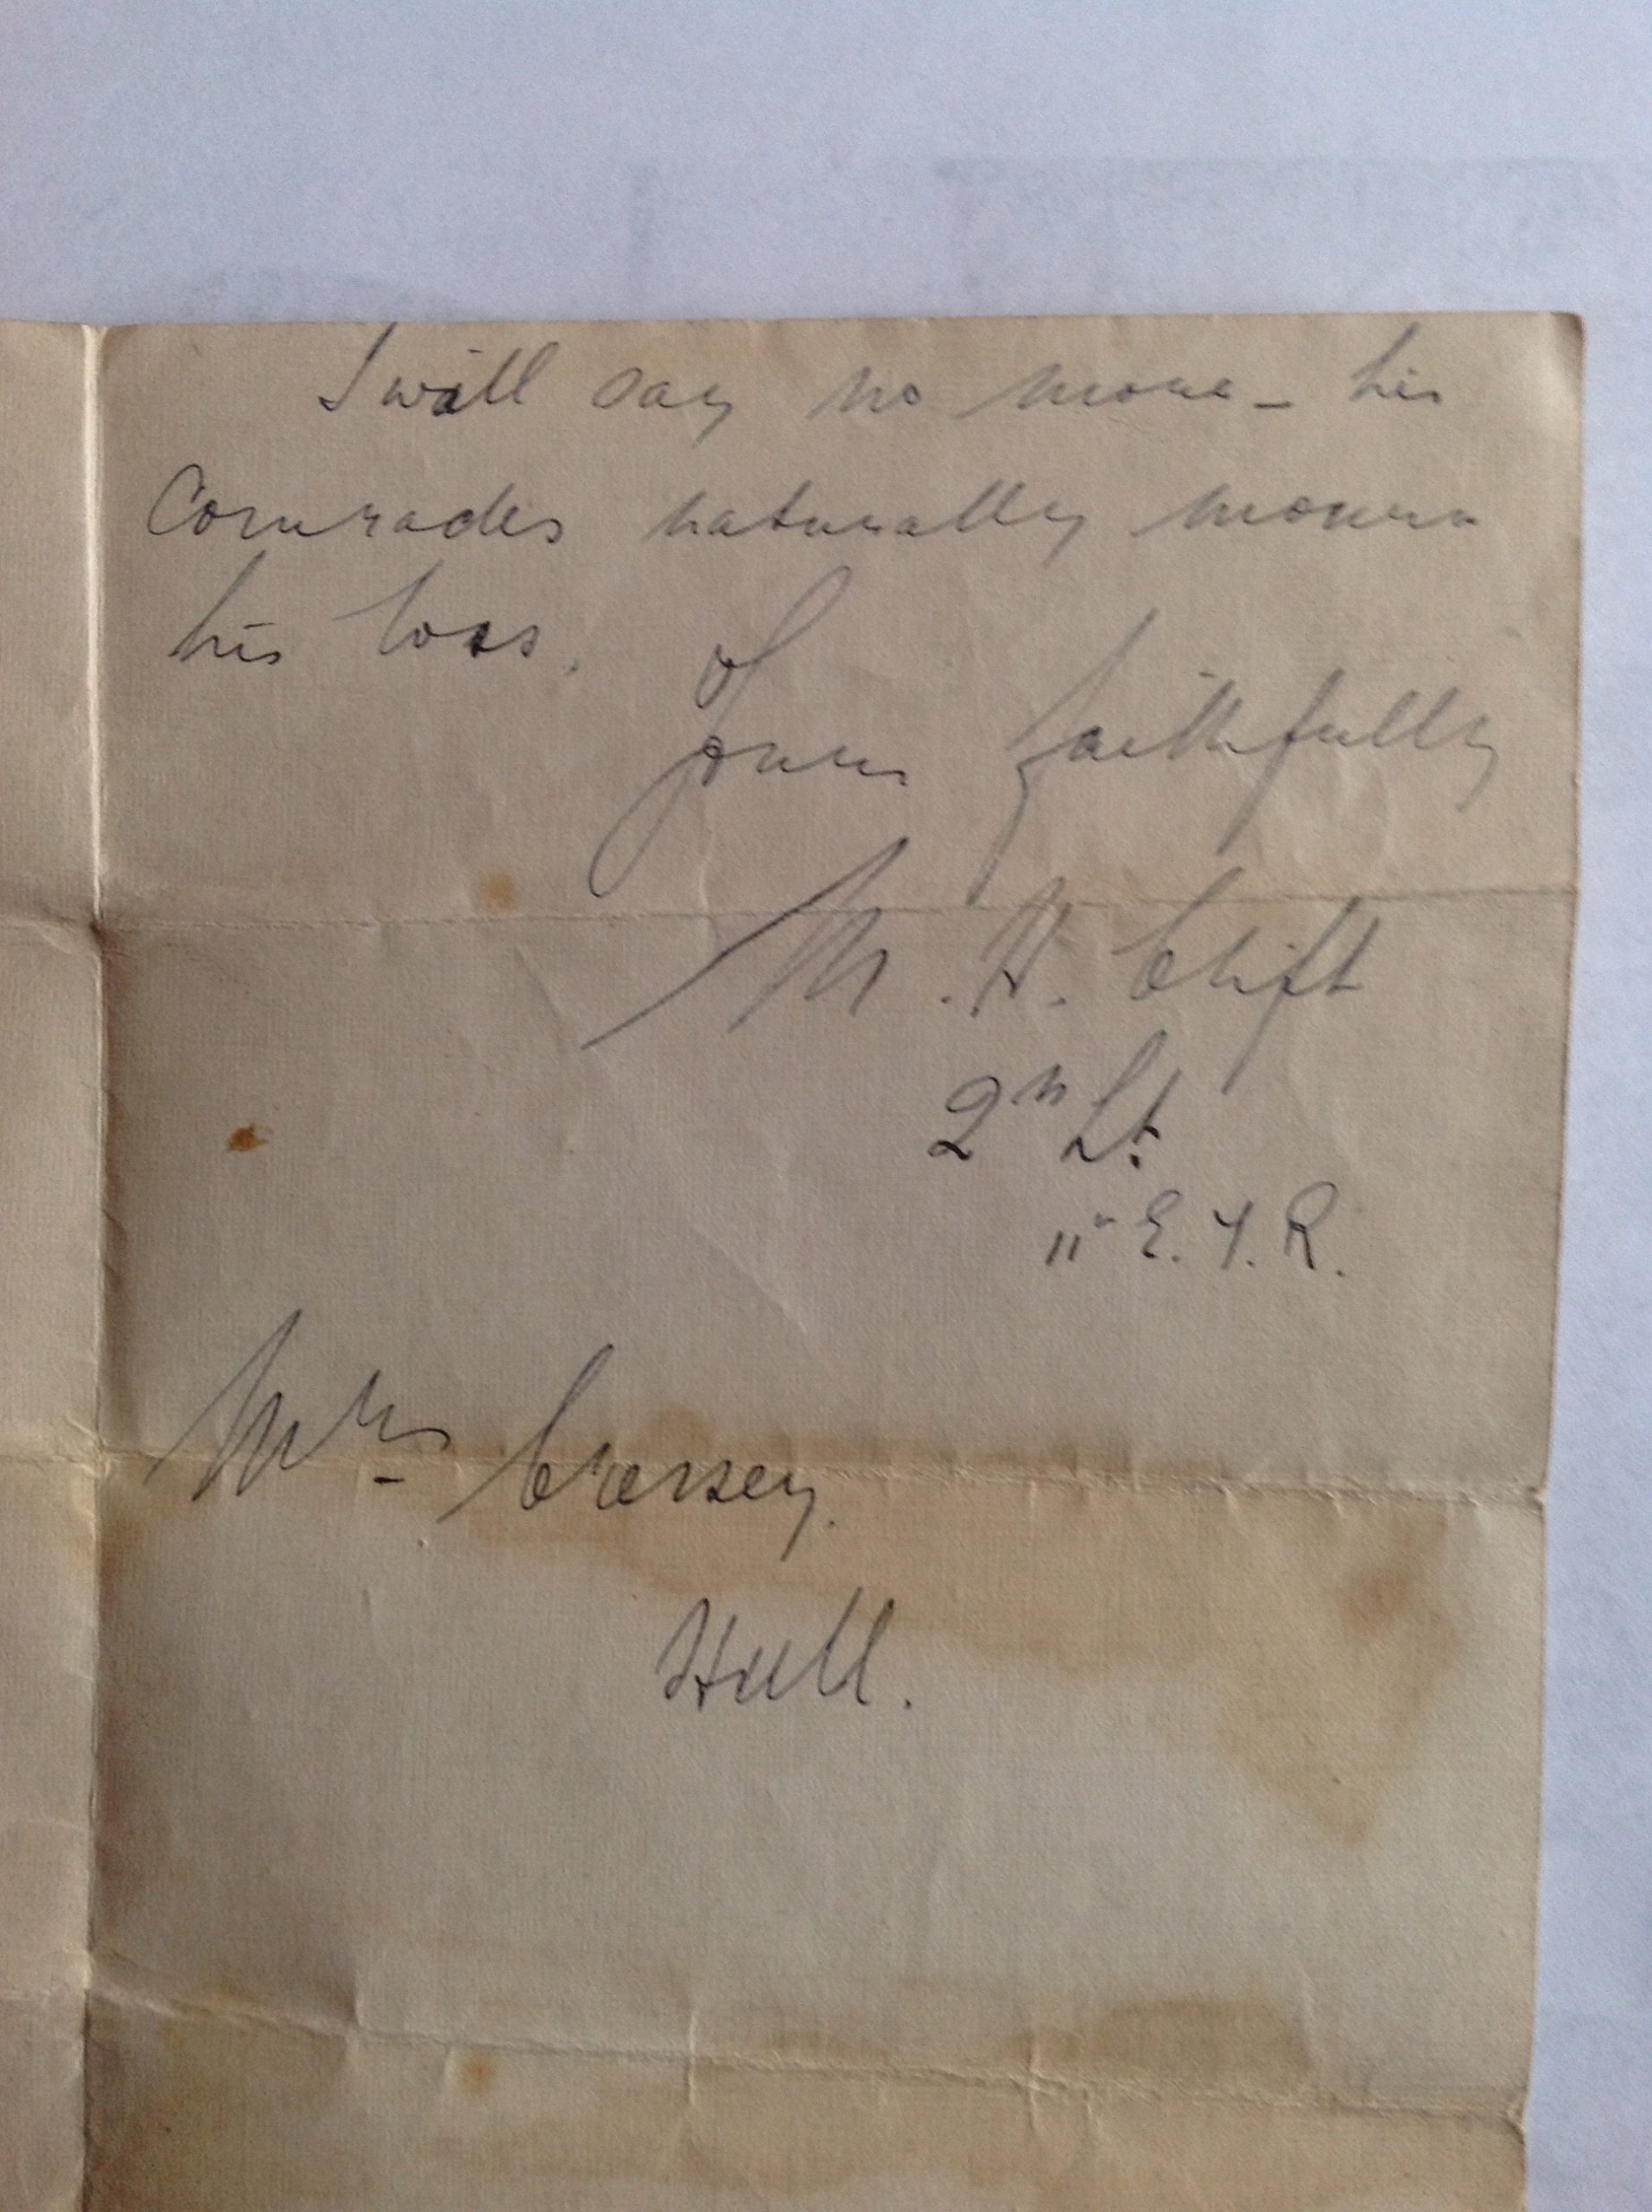 I will say no more – his
Comrades naturally mourn
his loss.
Yours faithfully
M. H. Clift
2n Lt.
11" E. Y. R.
Mrs Cressey.
Hull.